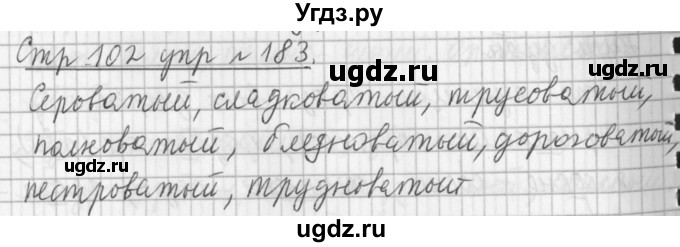 Угдз.ру
Стр 102 упр № 183.
ugdz.ru ugdz.ru
Сероватый, сладковатый, трусоватый,
полноватый, бледноватый, дороговатый,
ugdz.ru ugdz.ru
пестроватый, трудноватый
Угдз.ру